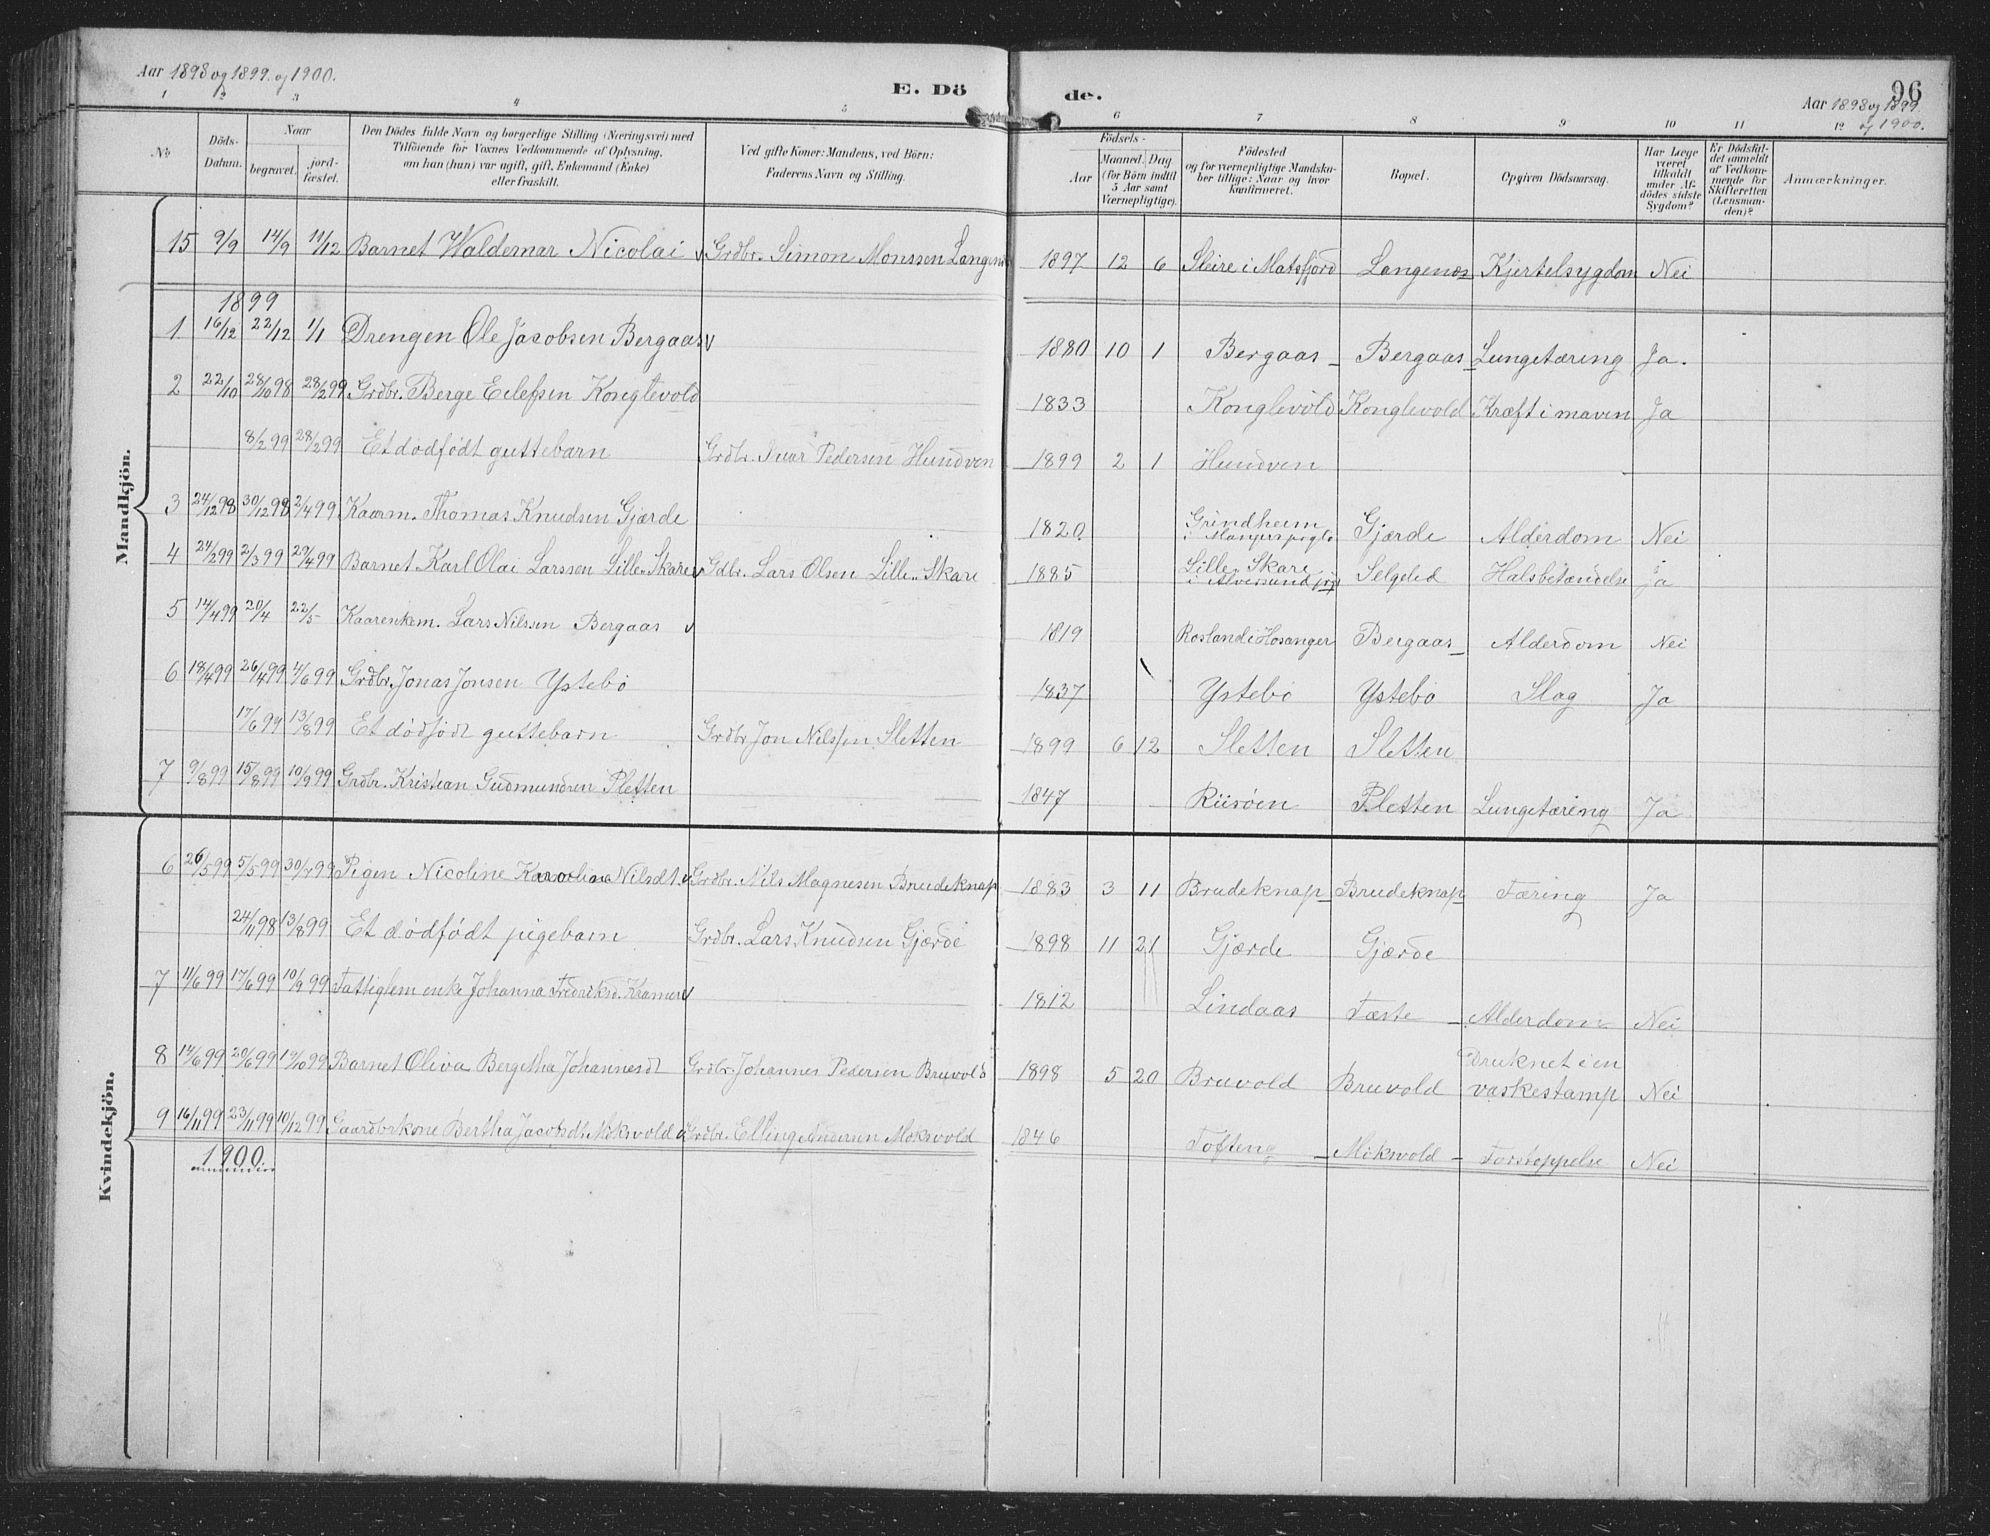 Aar 1898 og 1899. og 1900.
E. Dö
de.
96
Aar 1898 og 1899.
og 1900.
1 2 3 4 5 6 7 8 9 10 11 12
No
Döds-Datum.
Naar
begravet.
jord-fæstet.
Den Dödes fulde Navn og borgerlige Stilling (Næringsvei) med
Tilföiende for Voxnes Vedkommende af Oplysning,
om han (hun) var ugift, gift, Enkemand (Enke)
eller fraskilt.
Ved gifte Koner: Mandens, ved Börn:
Faderens Navn og Stilling.
Födsels-
Aar
Maaned. Dag
(for Börn indtil
5 Aar samt
Værnepligtige).
Födested
og for værnepligtige Mandska-
ber tillige: Naar og hvor
konfirmeret.
Bopæl.
Opgiven Dödsaarsag.
Har Læge
været
tilkaldt
under Af-
dödes sidste
Sygdom?
Er Dödsfal-
det anmeldt
af Vedkom-
mende for
Skifteretten
(Lensman-
den)?
Anmærkninger.
Mandkjön.
15 9/9 14/9 11/12 Barnet Waldemar Nicolai Grdbr. Simon Monssen Langenæs 1897 12 6 Sleire i Matsfjord Langenæs Kjertelsygdom Nei
1899
1 16/12 22/12 1/1 Drengen Ole Jacobsen Bergaas 1880 10 1 Bergaas Bergaas Lungetæring Ja.
2 22/10 28/10 98 28/2 99 Grdbr. Berge Eilefsen Konglevold 1833 Konglevold Konglevold Kræft i maven Ja
8/2 99 28/2 99 Et dödfödt guttebarn Grdbr. Ivar Pedersen Hundven 1899 2 1 Hundven
3 24/12 98 30/12 98 2/4 99 Kaarm. Thomas Knudsen Gjærde 1820 Grindheim i Gjærde Alderdom Nei
4 24/2 99 2/3 99 29/4 99 Barnet Karl Olai Larssen Lille-Skare Gdbr. Lars Olsen Lille-Skare 1885 Lille-Skare i Alversund Selgelid Halsbetændelse Ja
5 14/4 99 20/4 22/5 Kaarenkem. Lars Nilssen Bergaas 1819 Rosland i Hosanger Bergaas Alderdom Nei
6 18/4 99 26/4 99 4/6 99 Grdbr. Jonas Jonsen Ystebö 1837 Ystebö Ystebö Slag Ja
17/6 99 13/8 99 Et dödfödt guttebarn Grdbr. Jon Nilssen Sletten 1899 6 12 Sletten Sletten
7 9/8 99 15/8 99 10/9 99 Grdbr. Kristian Gudmundsen Pletten 1847 Riisöen Pletten Lungetæring Ja
Kvindekjön.
6 26/5 99 5/5 99 30/7 99 Pigen Nicoline Karolina Nilsdt. Grdbr. Nils Magnesen Brudeknap 1883 3 11 Brudeknap Brudeknap Tæring Ja
24/11 98 13/8 99 Et dödfödt pigebarn Grdbr. Lars Knudsen Gjærde 1898 11 21 Gjærde Gjærde
7 11/6 99 17/6 99 10/9 99 Fattiglem enke Johanna Fredriksd. Kramer 1812 Lindaas Fæste Alderdom Nei
8 14/6 99 20/6 99 19/10 99 Barnet Oliva Bergitha Johannesdt Grdbr. Johannes Pedersen Bruvold 1898 5 20 Bruvold Bruvold Druknet i en vaskestamp Nei
9 16/11 99 23/11 99 10/12 99 Gaardbrkone Bertha Jacobsdt. Mökvold Grdbr. Elling Andersen Mökvold 1846 Tofteng Mökvold Forstoppelse Nei
1900